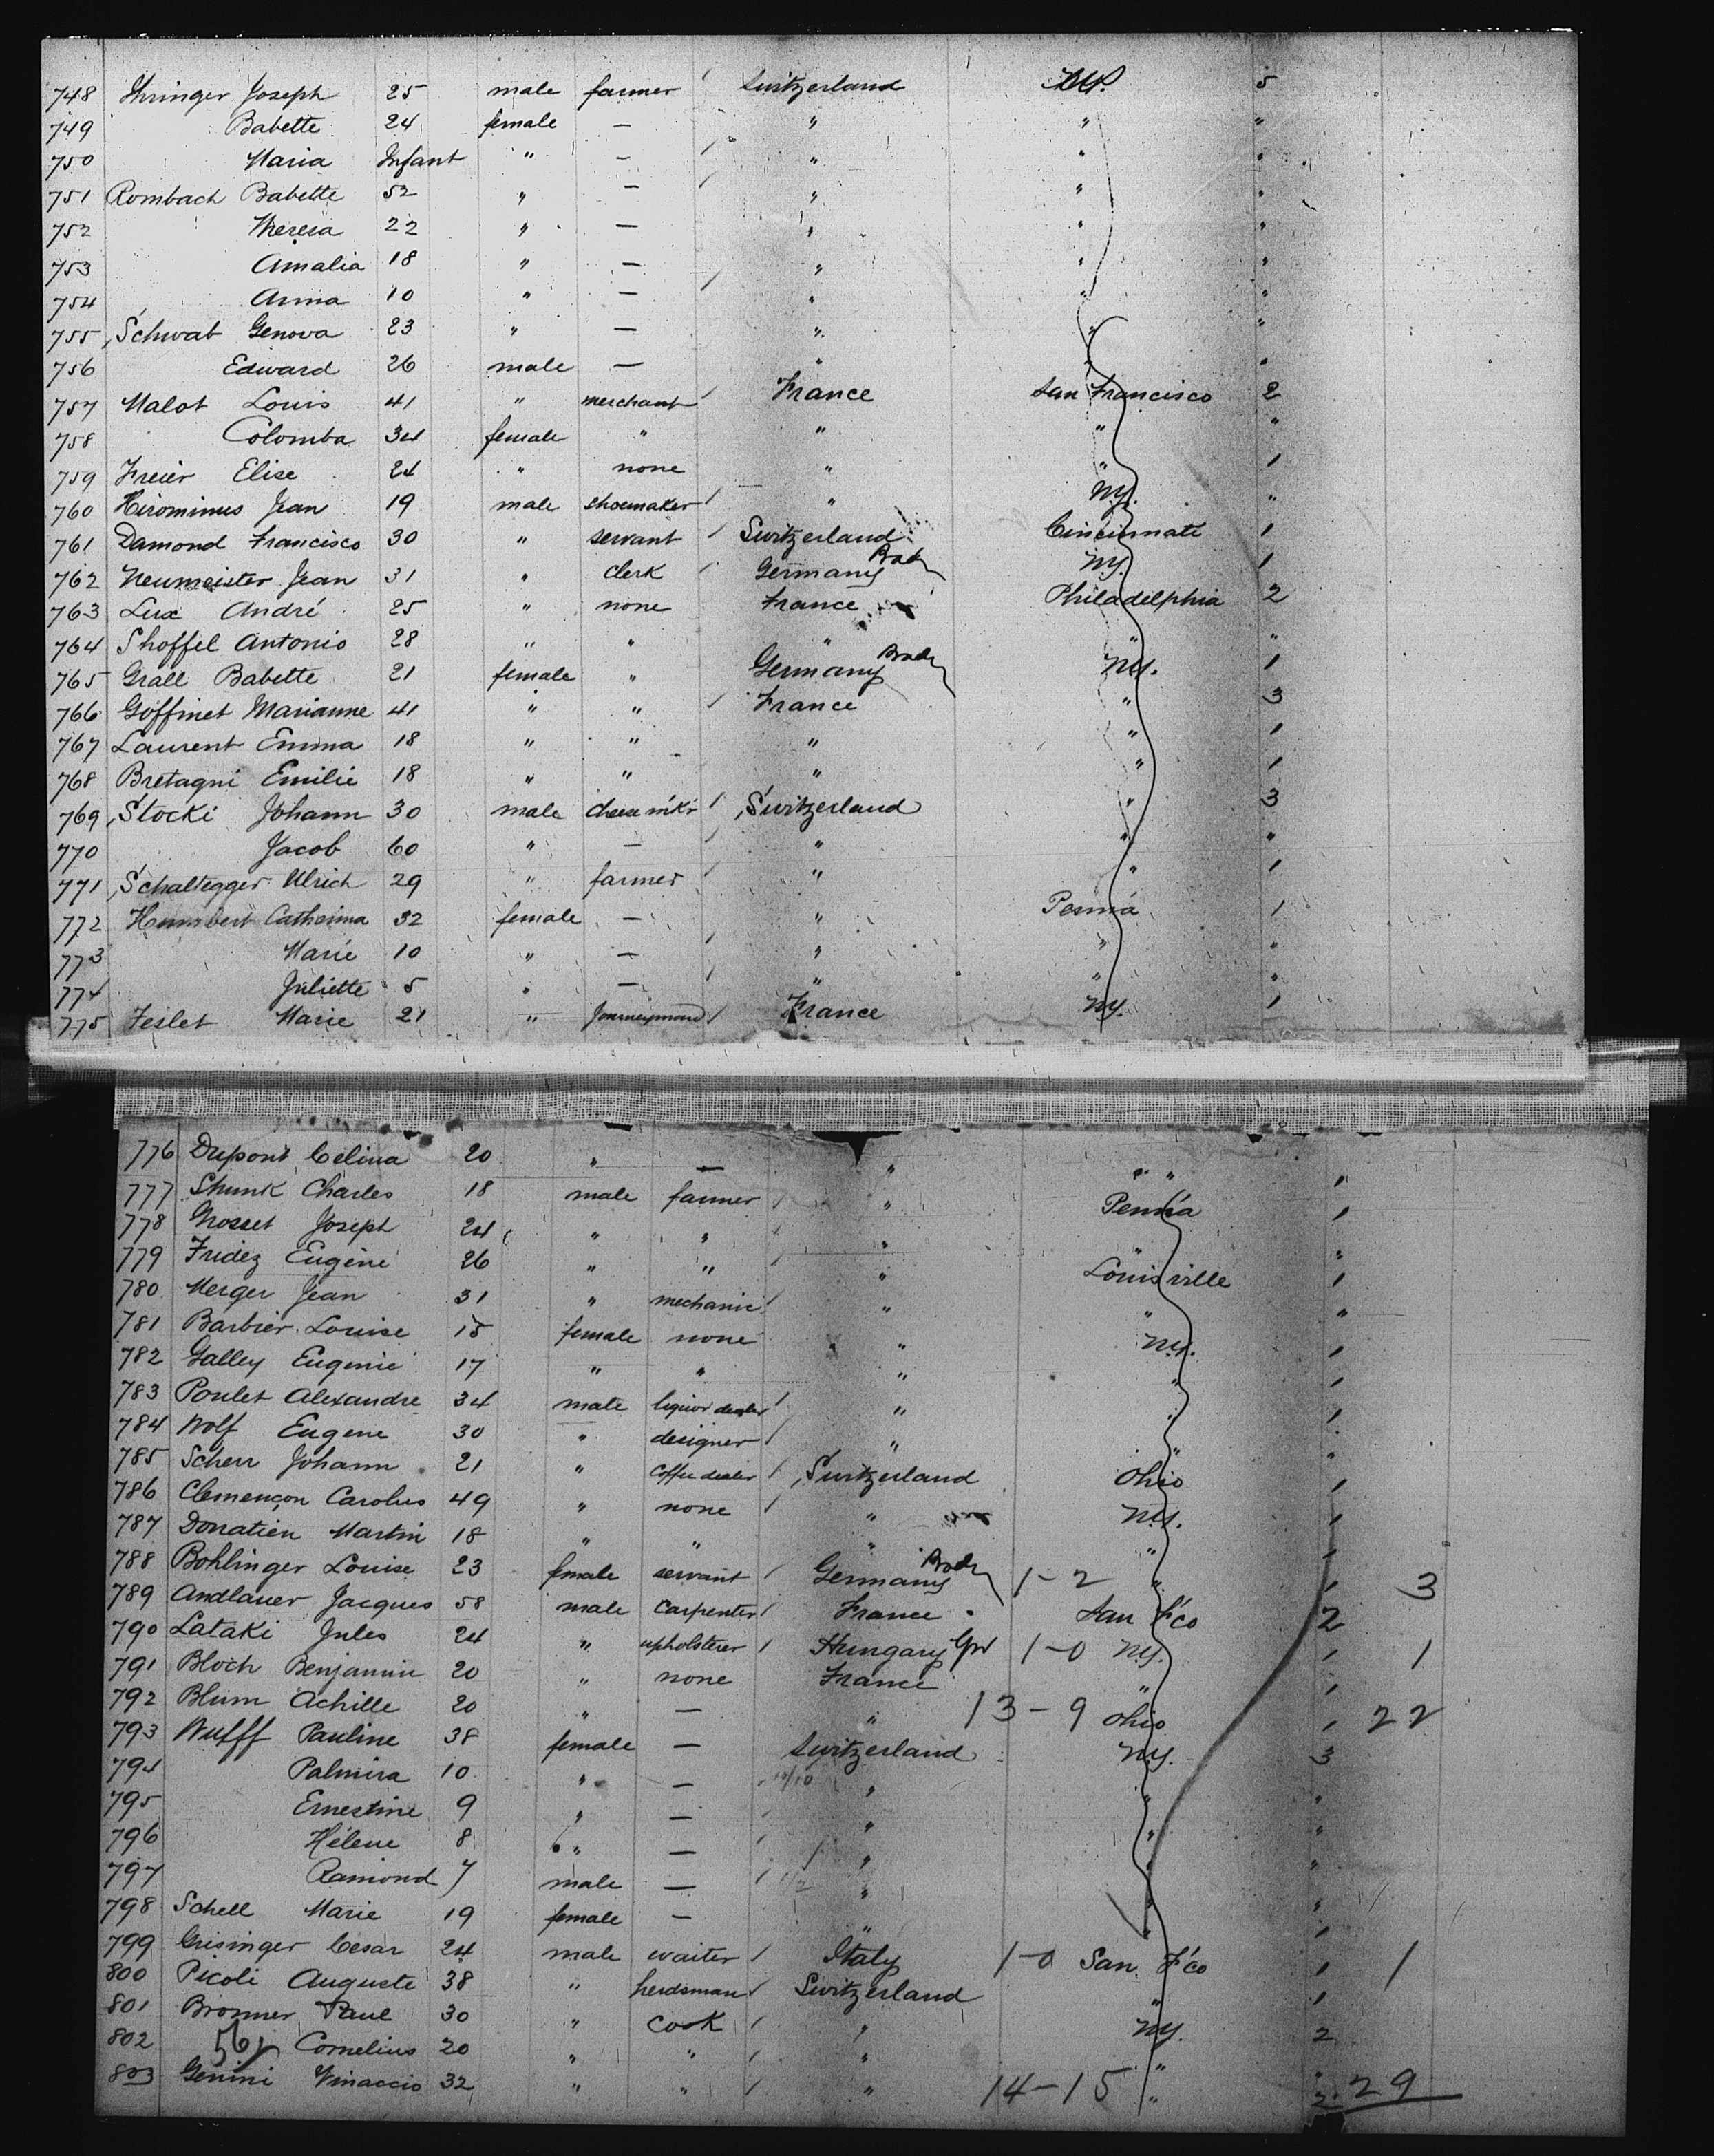 748 Ihringer Joseph 25 male farmer Switzerland N.Y. 5
749 Babette 24 female — " " "
750 Maria Infant " — " " "
751 Rombach Babette 52 " — " " "
752 Theresa 22 " — " " "
753 Amalia 18 " — " " "
754 Anna 10 " — " " "
755 Schwab Genova 23 " — " " "
756 Edward 26 male — " " "
757 Malot Louis 41 " merchant France San Francisco 2
758 Colomba 34 female " " " "
759 Freier Elise 24 " none " " 1
760 Hirominus Jean 19 male shoemaker " N.Y. "
761 Damond Francisco 30 " servant Switzerland Cincinnati 1
762 Neumeister Jean 31 " clerk Germany Bad N.Y. 1
763 Lux André 25 " none France Philadelphia 2
764 Shoffel Antonio 28 " " " " "
765 Grall Babette 21 female " Germany Bad N.Y. 1
766 Goffinet Marianne 41 " " France " 3
767 Laurent Emma 18 " " " " 1
768 Bretagni Emilie 18 " " " " 1
769 Stocki Johann 30 male cheese m'k'r Switzerland " 3
770 Jacob 60 " — " " "
771 Schaltegger Ulrich 29 " farmer " " 1
772 Humbert Catherina 32 female — " Penna 1
773 Marie 10 " — " " "
774 Juliette 5 " — " " "
775 Feslet Marie 21 " France N.Y. 1
776 Dupont Celina 20 " — " " " 1
777 Shunk Charles 18 male farmer " Penna 1
778 Grosset Joseph 24 " " " " "
779 Fridez Eugène 26 " " " Louisville 1
780 Merger Jean 31 " mechanic " " "
781 Barbier Louise 18 female none " N.Y. 1
782 Galley Eugenie 17 " " " " 1
783 Poulet Alexandre 34 male liquor dealer " " 1
784 Wolf Eugene 30 " designer " " "
785 Scherr Johann 21 " Coffee dealer Switzerland Ohio 1
786 Clemençon Carolus 49 " none " N.Y. 1
787 Donatien Martin 18 " " " " 1
788 Bohlinger Louise 23 female servant Germany Bad 1-2 " 1 3
789 Andlauer Jacques 58 male carpenter France San F'co 2
790 Lataki Jules 24 " upholsterer Hungary 1-0 N.Y. 1 1
791 Bloch Benjamin 20 " none France " 1
792 Blum Achille 20 " — " 13-9 Ohio 1 22
793 Wufff Pauline 38 female — Switzerland N.Y. 3
794 Palmira 10 " — " " "
795 Ernestine 9 " — " " "
796 Hélene 8 " — " " "
797 Raimond 7 male — " " "
798 Schell Marie 19 female — " " 1
799 Grisinger Cesar 24 male waiter Italy 1-0 San F'co 1 1
800 Picoli Auguste 38 " herdsman Switzerland " 1
801 Bronner Paul 30 " cook " N.Y. 2
802 562 Cornelius 20 " " " " "
803 Genini Vinaccio 32 " " " 14-15 " 2 29